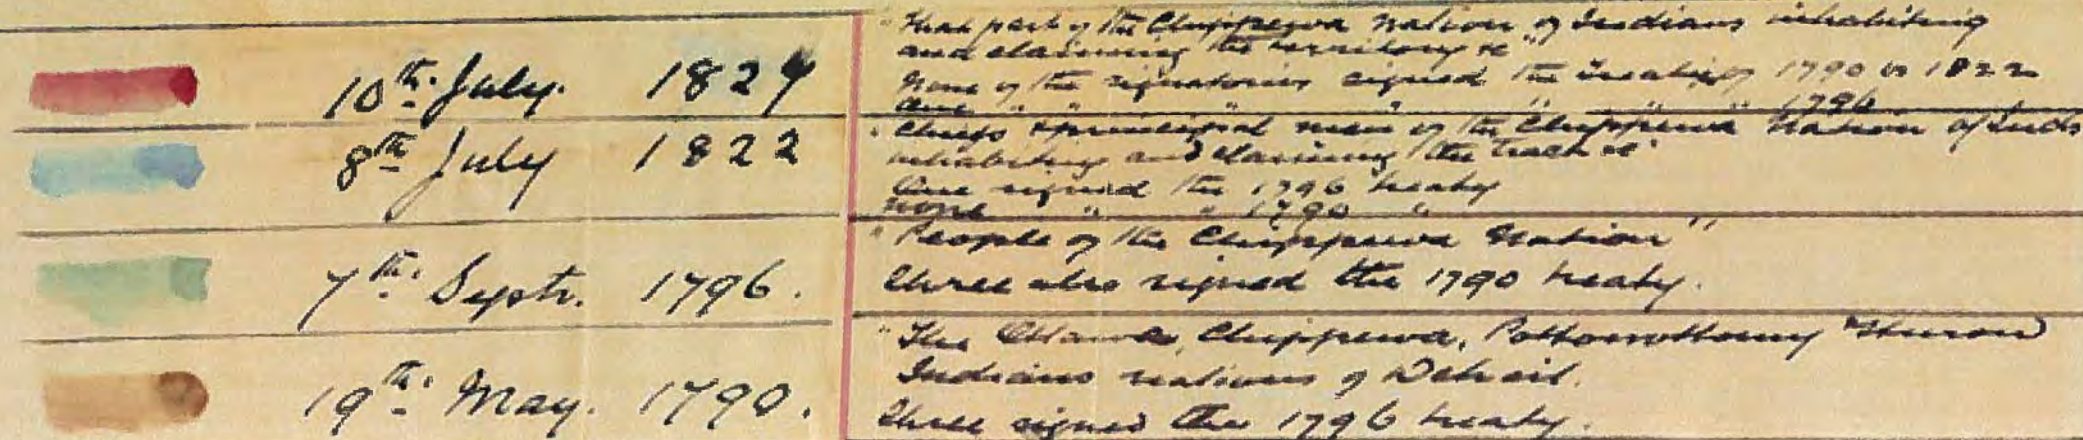 10th. July. 1827
"That part of the Chippewa Nation of Indians inhabiting
and claiming the territory &c"
None of the signatories signed the treaties of 1790 or 1822
One " " " " " " " 1796
8th July 1822
"Chiefs & principal men of the Chippewa Nation of Inds
inhabiting and claiming the tract &c"
One signed the 1796 treaty
None " " 1790 "
7th. Septr. 1796.
"People of the Chippewa Nation"
three also signed the 1790 treaty.
19th. May. 1790.
"The Ottawa, Chippewa, Pottomottomy & Huron
Indians nations of Detroit.
three signed the 1796 treaty.